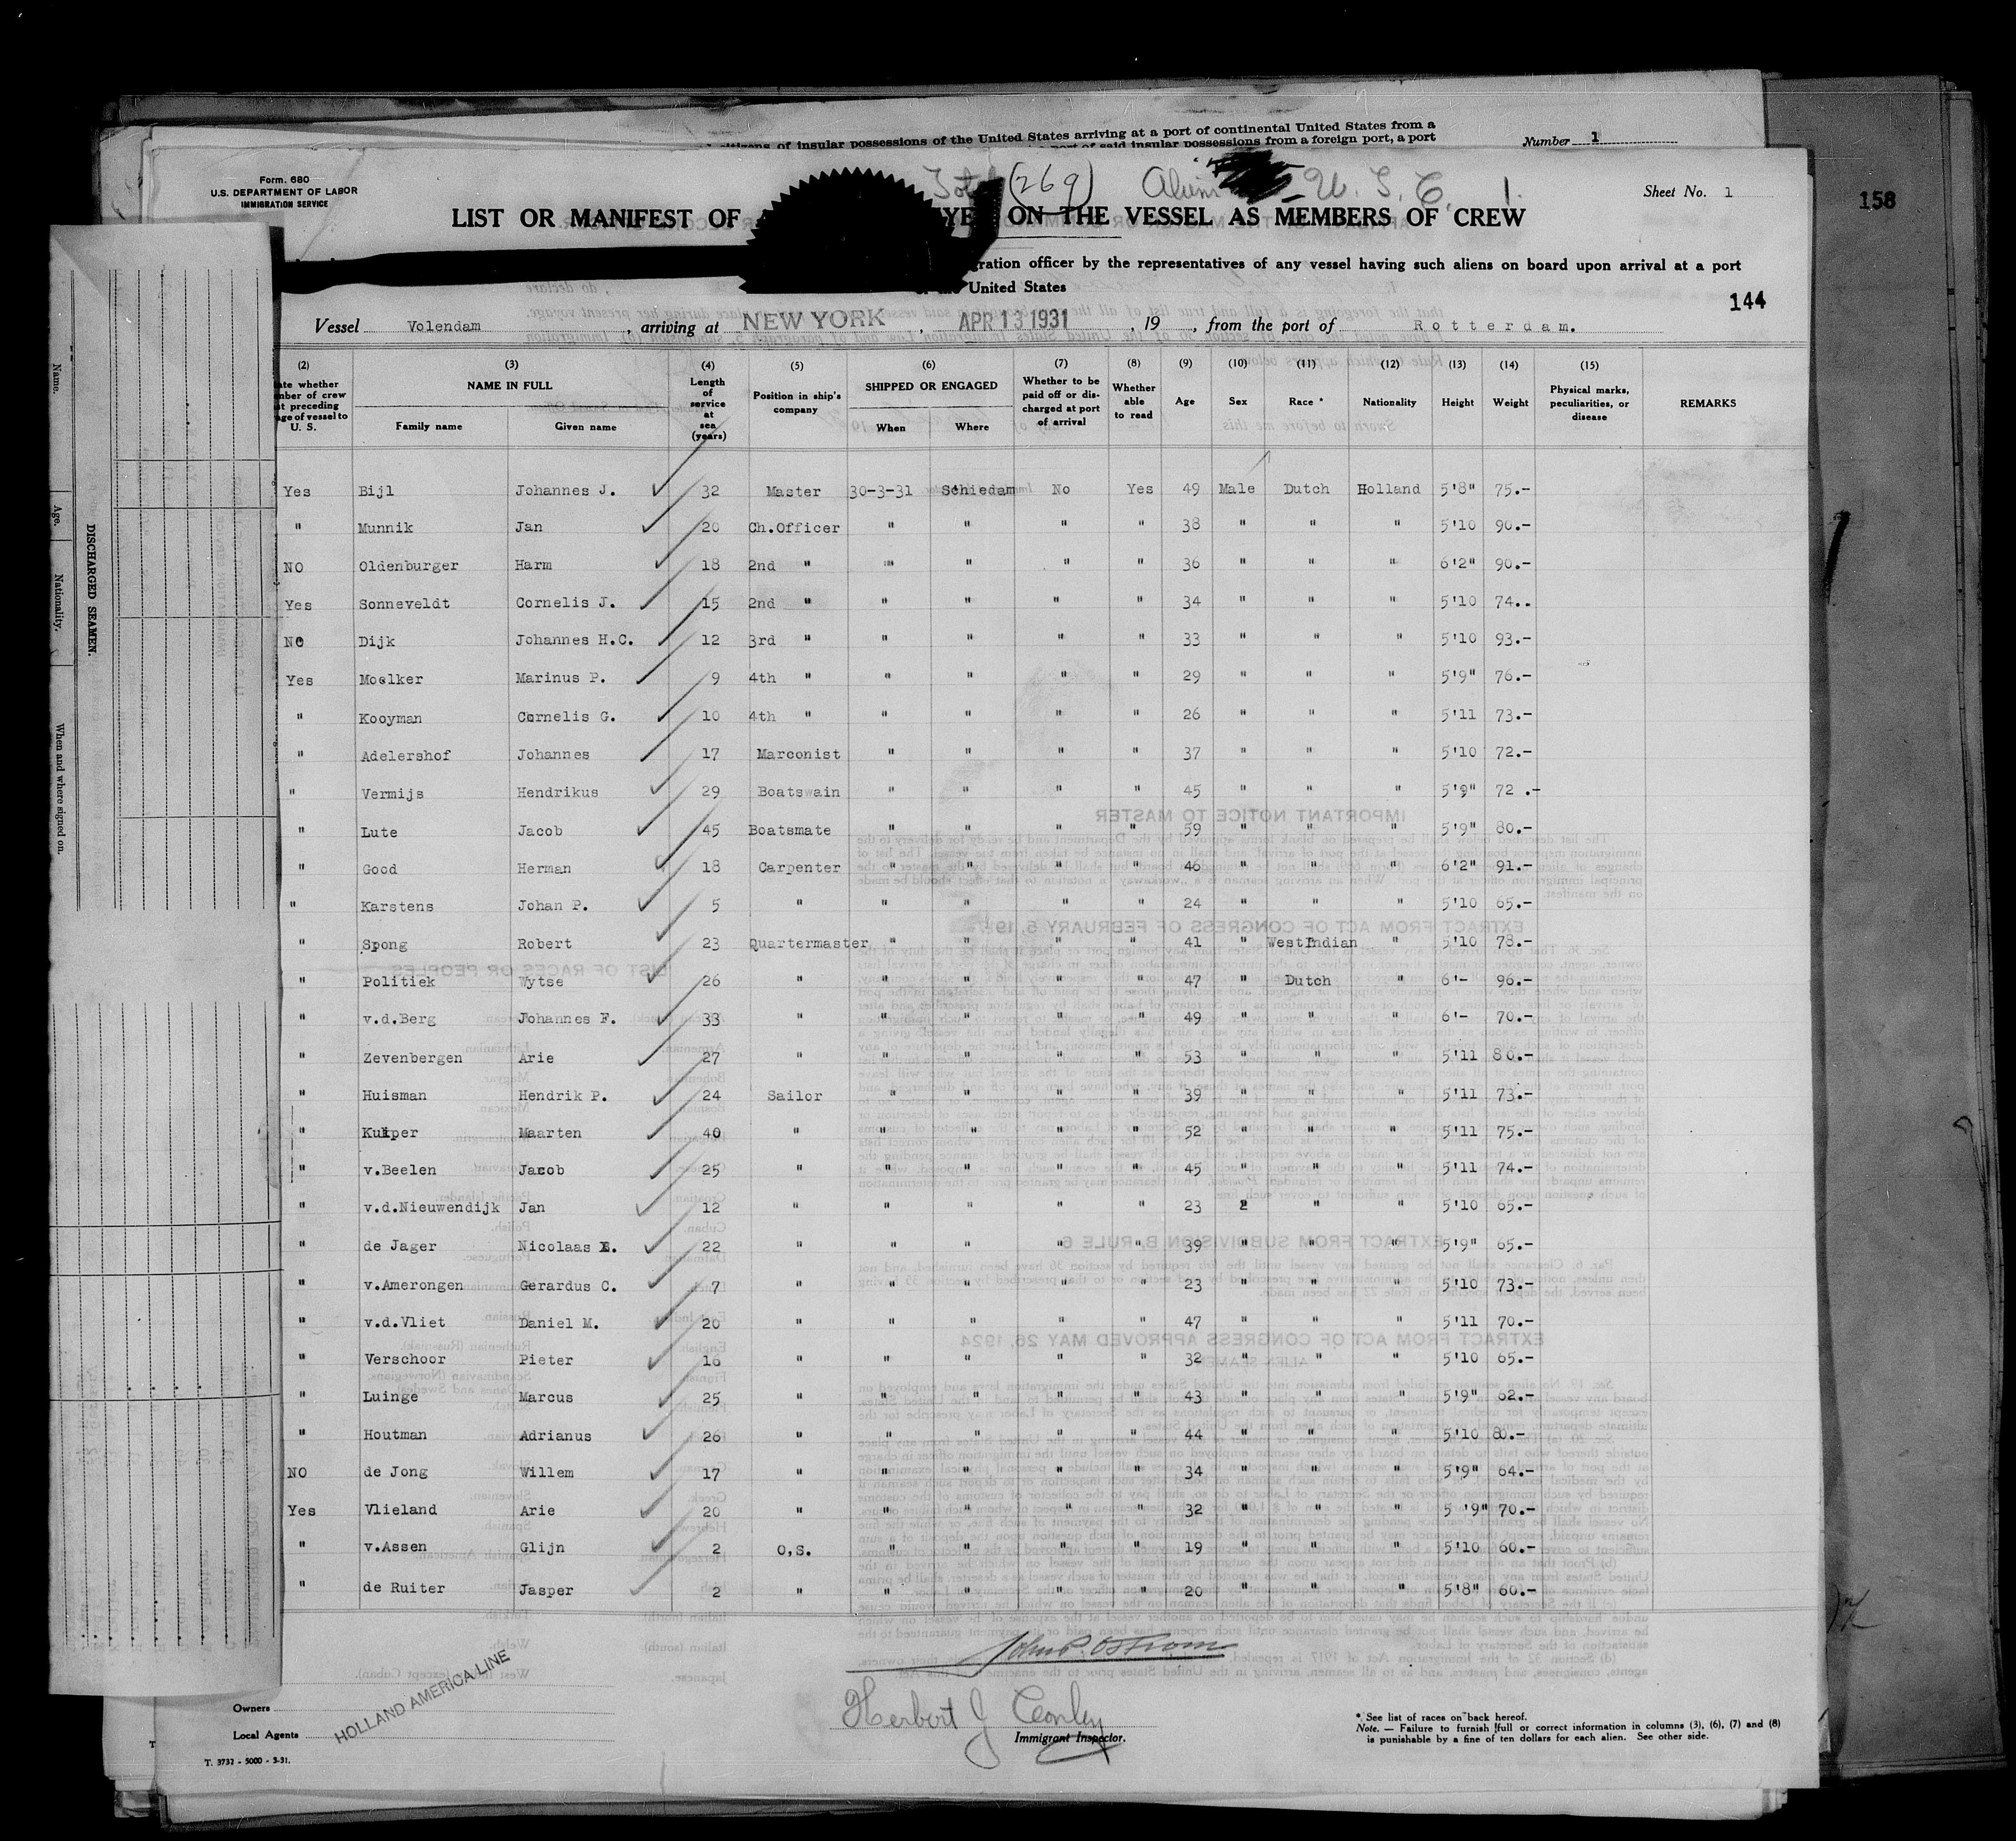 citizens of insular possessions of the United States arriving at a port of continental United States from a
port of said insular possessions from a foreign port, a port
Number 1
158
Form. 680
U.S. DEPARTMENT OF LABOR
IMMIGRATION SERVICE
Total (269) U.S.C. 1.
Sheet No. 1
LIST OR MANIFEST OF ON THE VESSEL AS MEMBERS OF CREW
officer by the representatives of any vessel having such aliens on board upon arrival at a port
United States
144
Vessel Volendam, arriving at NEW YORK, APR 13 1931, 19 , from the port of Rotterdam.
(2) (3) (4) (5) (6) (7) (8) (9) (10) (11) (12) (13) (14) (15)
whether
of crew
preceding
of vessel to
U. S.
NAME IN FULL
Family name Given name
Length of service at sea (years)
Position in ship's company
SHIPPED OR ENGAGED
When Where
Whether to be paid off or discharged at port of arrival
Whether able to read
Age Sex Race * Nationality Height Weight
Physical marks, peculiarities, or disease
REMARKS
Yes Bijl Johannes J. 32 Master 30-3-31 Schiedam No Yes 49 Male Dutch Holland 5'8" 75.-
" Munnik Jan 20 Ch.Officer " " " " 38 " " " 5'10 90.-
NO Oldenburger Harm 18 2nd " " " " " 36 " " " 6'2" 90.-
Yes Sonneveldt Cornelis J. 15 2nd " " " " " 34 " " " 5'10 74..
NO Dijk Johannes H.C. 12 3rd " " " " " 33 " " " 5'10 93.-
Yes Moelker Marinus P. 9 4th " " " " " 29 " " " 5'9" 76.-
" Kooyman Cornelis G. 10 4th " " " " " 26 " " " 5'11 73.-
" Adelershof Johannes 17 Marconist " " " " 37 " " " 5'10 72.-
" Vermijs Hendrikus 29 Boatswain " " " " 45 " " " 5'9" 72 .-
" Lute Jacob 45 Boatsmate " " " " 59 " " " 5'9" 80.-
" Good Herman 18 Carpenter " " " " 46 " " " 6'2" 91.-
" Karstens Johan P. 5 " " " " " 24 " " " 5'10 65.-
" Spong Robert 23 Quartermaster " " " " 41 " WestIndian " 5'10 78.-
" Politiek Wytse 26 " " " " " 47 " Dutch " 6'- 96.-
" v.d.Berg Johannes F. 33 " " " " " 49 " " " 6'- 70.-
" Zevenbergen Arie 27 " " " " " 53 " " " 5'11 80.-
" Huisman Hendrik P. 24 Sailor " " " " 39 " " " 5'11 73.-
" Kuiper Maarten 40 " " " " " 52 " " " 5'11 75.-
" v.Beelen Jacob 25 " " " " " 45 " " " 5'11 74.-
" v.d.Nieuwendijk Jan 12 " " " " " 23 " " " 5'10 65.-
" de Jager Nicolaas 22 " " " " " 39 " " " 5'9" 65.-
" v.Amerongen Gerardus C. 7 " " " " " 23 " " " 5'10 73.-
" v.d.Vliet Daniel M. 20 " " " " " 47 " " " 5'11 70.-
" Verschoor Pieter 16 " " " " " 32 " " " 5'10 65.-
" Luinge Marcus 25 " " " " " 43 " " " 5'9" 62.-
" Houtman Adrianus 26 " " " " " 44 " " " 5'10 80.-
NO de Jong Willem 17 " " " " " 34 " " " 5'9" 64.-
Yes Vlieland Arie 20 " " " " " 32 " " " 5 '9" 70.-
" v.Assen Glijn 2 O,S. " " " " 19 " " " 5'10 60.-
" de Ruiter Jasper 2 " " " " " 20 " " " 5'8" 60.-
John P. Ostrom
Owners
Local Agents HOLLAND AMERICA LINE
Herbert J Conley
Immigrant Inspector.
* See list of races on back hereof.
Note. — Failure to furnish full or correct information in columns (3), (6), (7) and (8)
is punishable by a fine of ten dollars for each alien. See other side.
T. 3737 - 5000 - 3-31.
DISCHARGED SEAMEN.
Name.
Age.
Nationality.
When and where signed on.